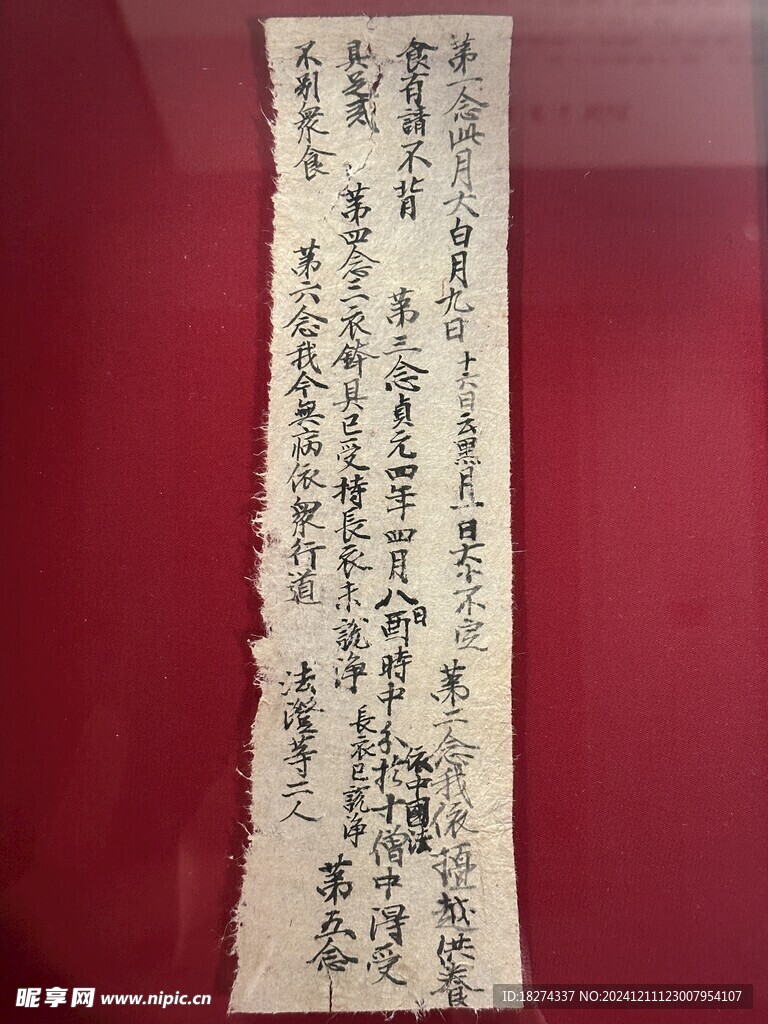 第一念此月大白月九日 十六日云黑月一日大小不定 第二念我依檀越供養
食有請不背 第三念貞元四年四月八日酉時中 依中國法 於十僧中得受
具足戒 第四念三衣鉢具已受持長衣未說淨 長衣已說淨 第五念
不別衆食 第六念我今無病依衆行道 法澄等二人
昵享网 www.nipic.cn
ID:18274337 NO:20241211123007954107